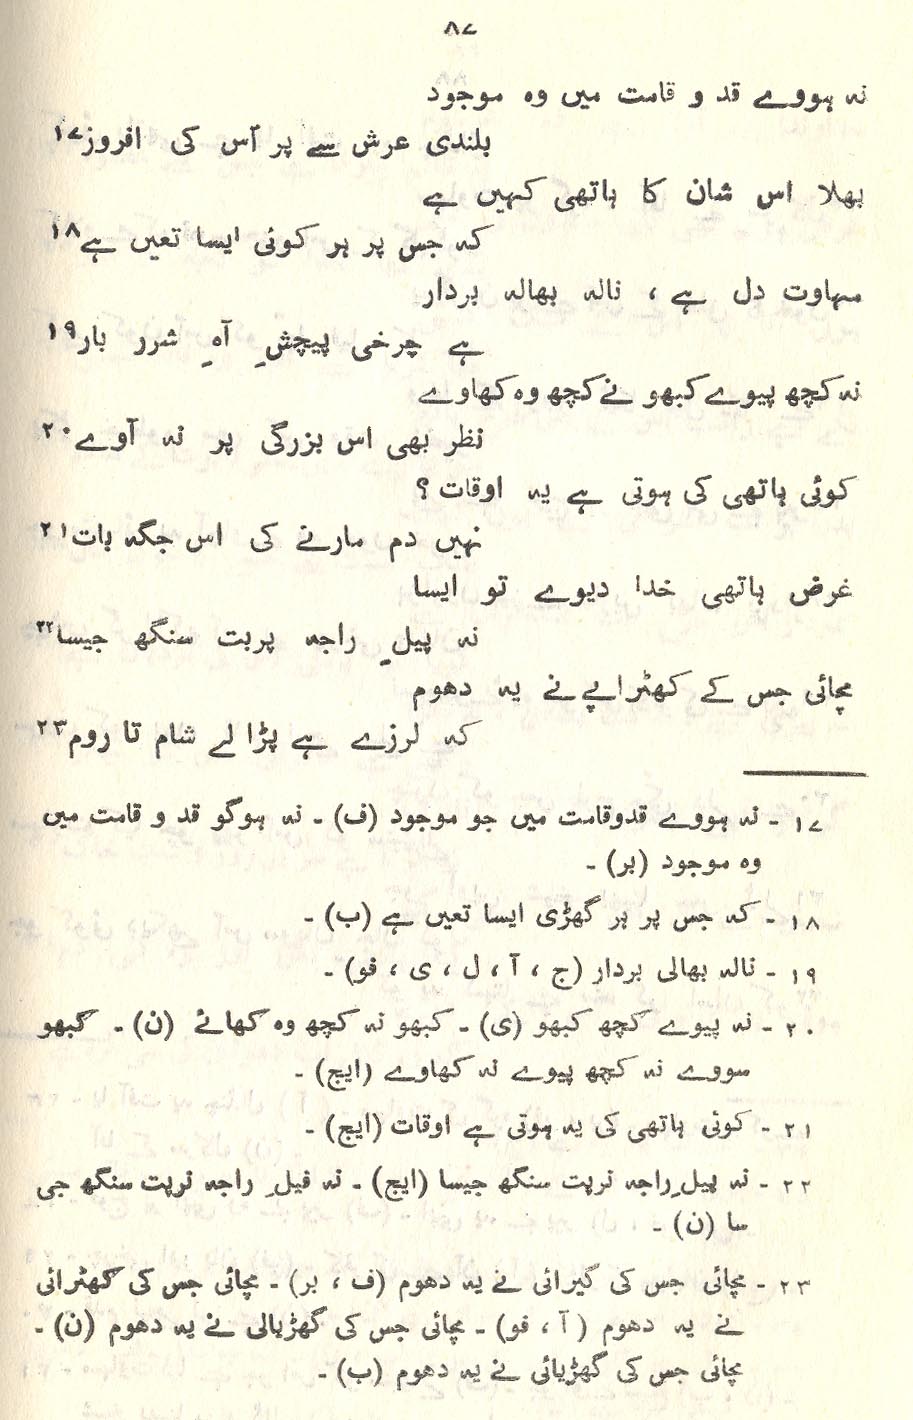 ۸۷
نہ ہووے قد و قامت میں وہ موجود
بلندی عرش سے پر اُس کی افروز۱۷
بھلا اس شان کا ہاتھی کہیں ہے
کہ جس پر ہر کوئی ایسا تعیں ہے۱۸
مہاوت دل ہے ، نالہ بھالہ بردار
ہے چرخی پیچشِ آہِ شرر بار۱۹
نہ کچھ پیوے کبھو نے کچھ وہ کھاوے
نظر بھی اس بزرگی پر نہ آوے۲۰
کوئی ہاتھی کی ہوتی ہے یہ اوقات ؟
نہیں دم مارنے کی اس جگہ بات۲۱
غرض ہاتھی خدا دیوے تو ایسا
نہ پیلِ راجہ پربت سنگھ جیسا۲۲
مچائی جس کے کھٹراپے نے یہ دھوم
کہ لرزے ہے پڑا لے شام تا روم۲۳
۱۷ - نہ ہووے قدوقامت میں جو موجود (ف) - نہ ہوگو قد و قامت میں
وہ موجود (بر) -
۱۸ - کہ جس پر ہر گھڑی ایسا تعیں ہے (ب) -
۱۹ - نالہ بھالی بردار (ج ، آ ، ل ، ی ، فو) -
۲۰ - نہ پیوے کچھ کبھو (ی) - کبھو نہ کچھ وہ کھائے (ن) - کبھو
سووے نہ کچھ پیوے نہ کھاوے (ایچ) -
۲۱ - کوئی ہاتھی کی یہ ہوتی ہے اوقات (ایچ) -
۲۲ - نہ پیلِ راجہ نرپت سنگھ جیسا (ایچ) - نہ فیلِ راجہ نرپت سنگھ جی
سا (ن) -
۲۳ - مچائی جس کی گیرائی نے یہ دھوم (ف ، بر) - مچائی جس کی کھٹرائی
نے یہ دھوم (آ ، فو) - مچائی جس کی گھڑیالی نے یہ دھوم (ن) -
مچائی جس کی گھڑیائی نے یہ دھوم (ب) -